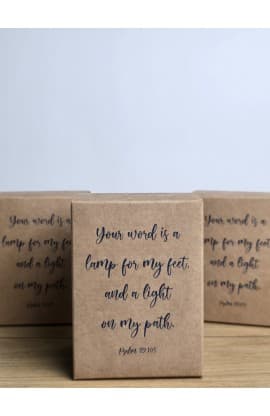 Your word is a
lamp for my feet,
and a light
on my path.
Psalm 119:105
Your word is a
lamp for my feet,
and a light
on my path.
Your word is a
lamp for my feet,
and a light
on my path.